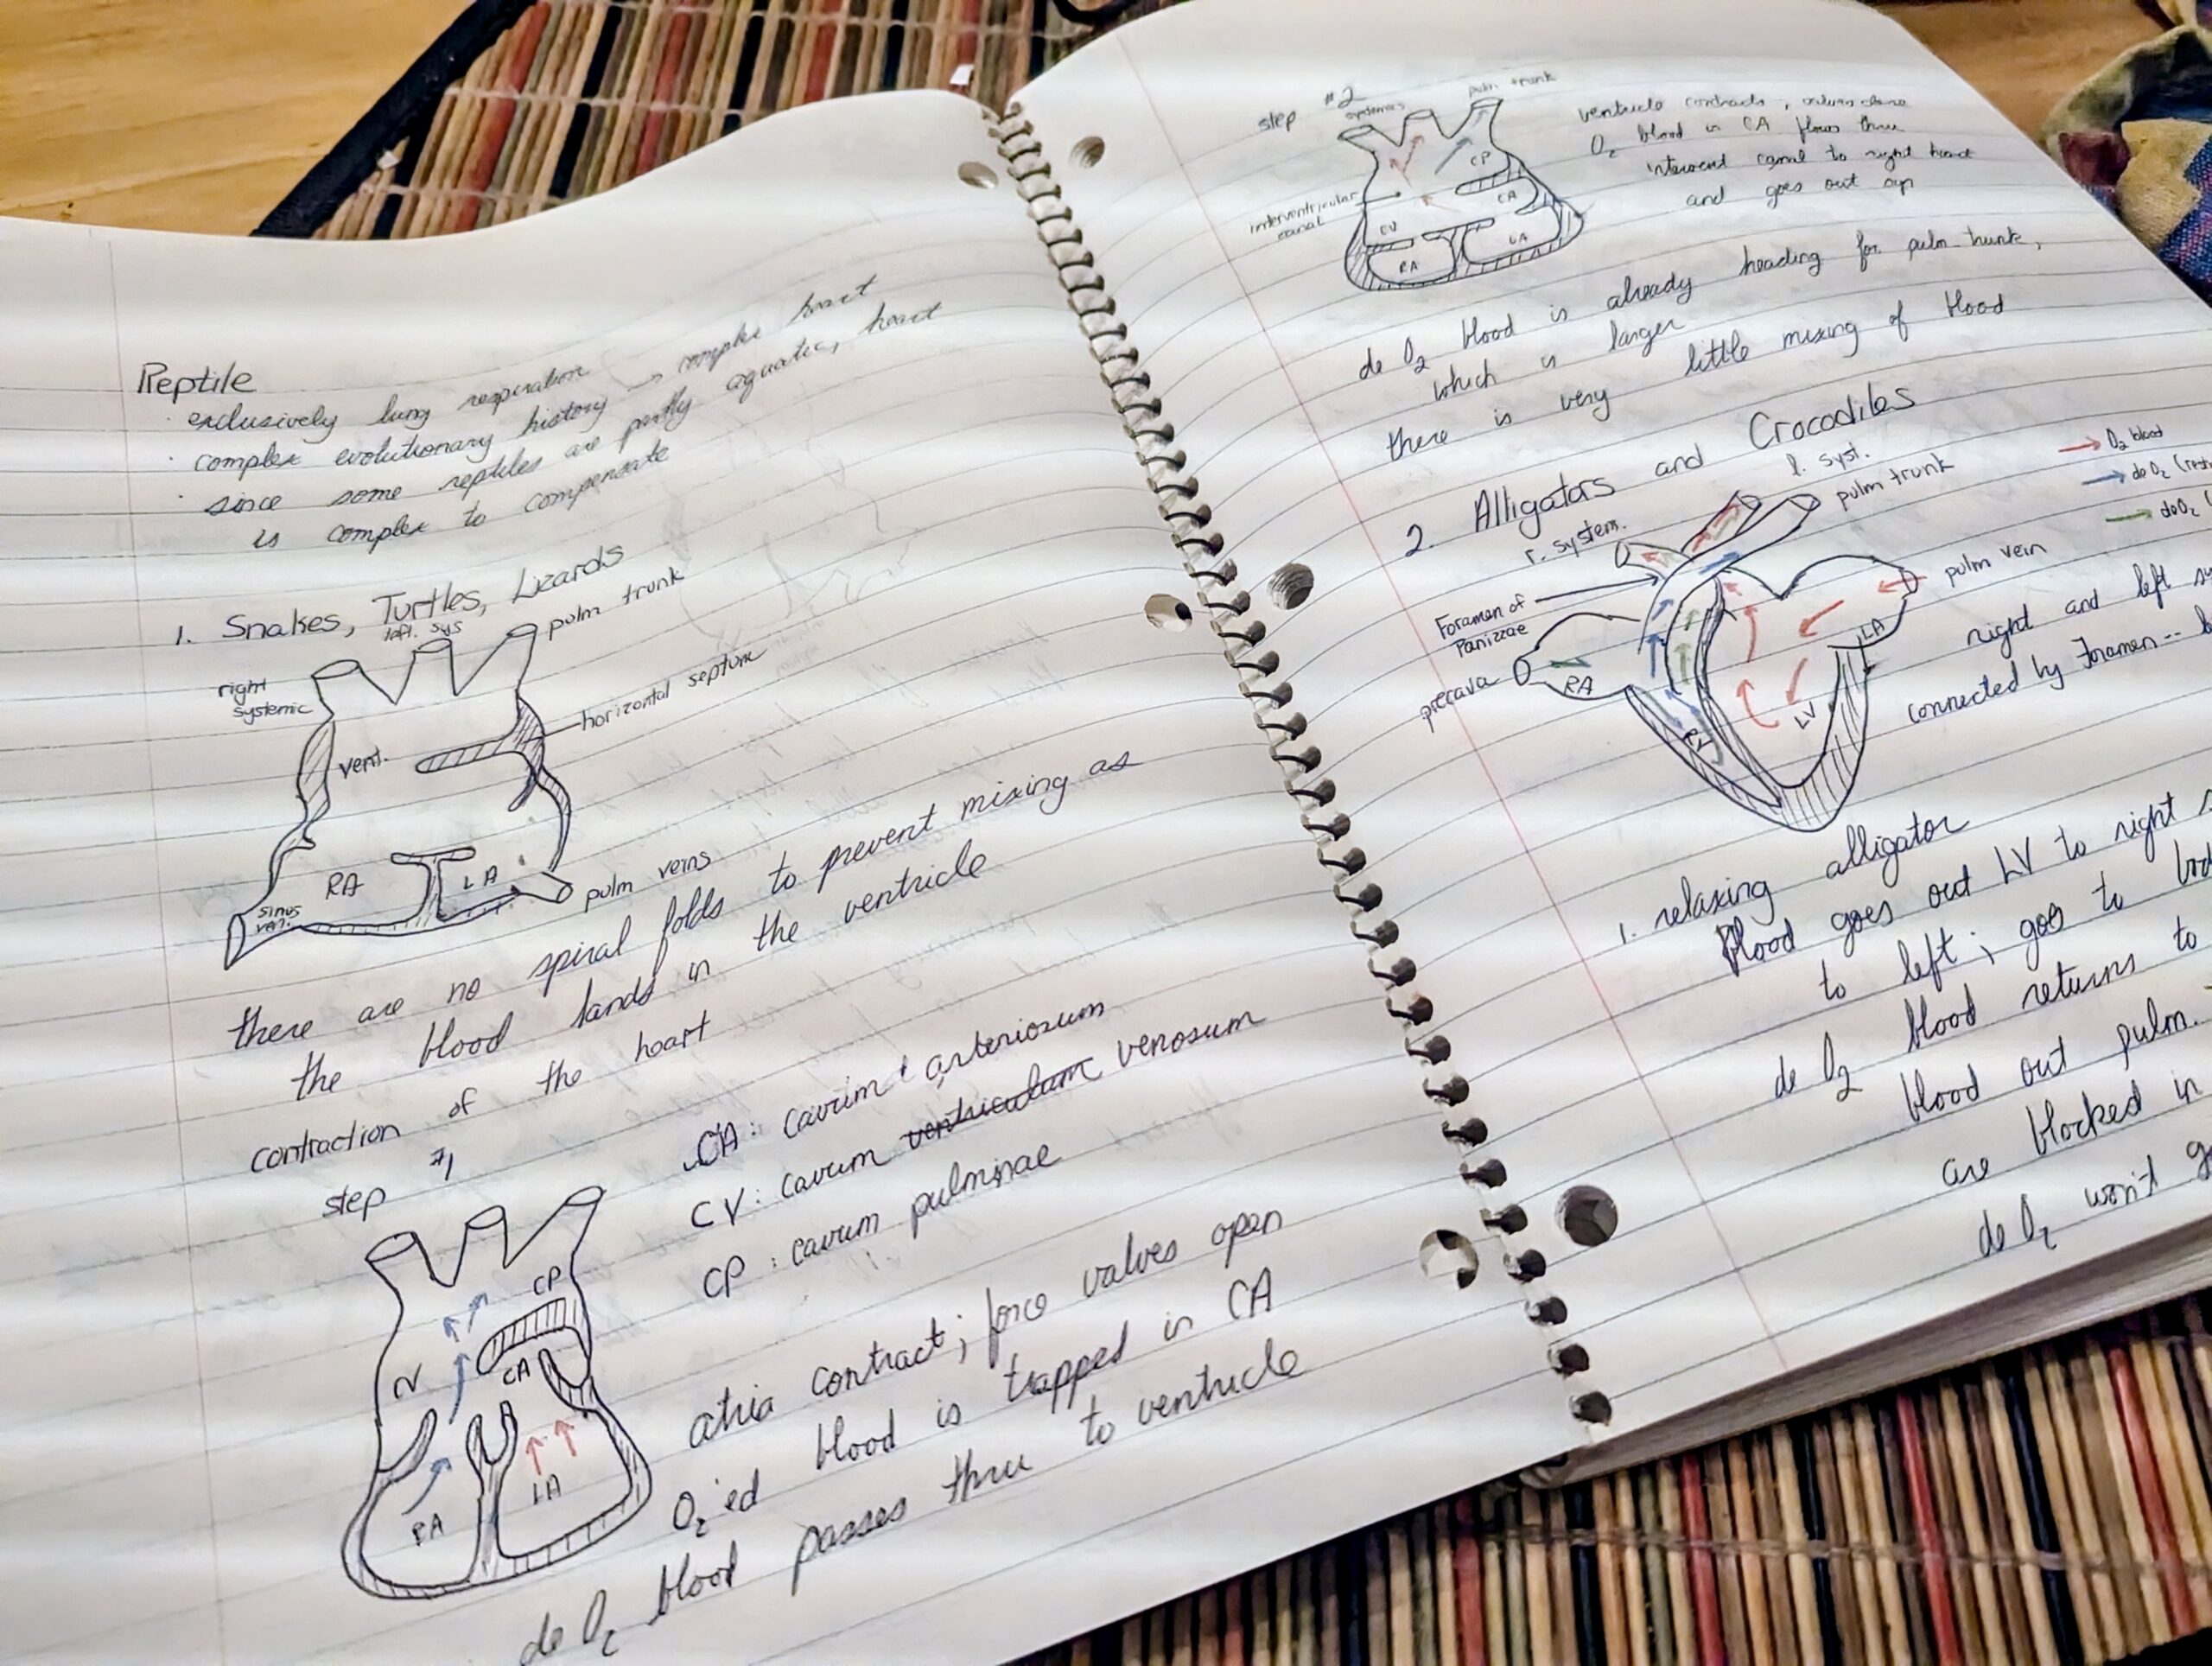 Reptile
· exclusively lung respiration
· complex evolutionary history → complex heart
· since some reptiles are partly aquatic, heart
is complex to compensate
1. Snakes, Turtles, Lizards
left. sys
pulm trunk
right
systemic
horizontal septum
vent.
RA
LA
sinus
ven.
pulm veins
there are no spiral folds to prevent mixing as
the blood lands in the ventricle
contraction of the heart
step #1
CA: cavum arteriosum
CV: cavum ventriculum venosum
CP: cavum pulminae
CP
CV
CA
RA
LA
atria contract; force valves open
O2'ed blood is trapped in CA
de O2 blood passes thru to ventricle
step #2
systemics
pulm trunk
interventricular
canal
CP
CA
CV
RA
LA
ventricle contracts, valves close
O2 blood in CA flows thru
intervent canal to right heart
and goes out
de O2 blood is already heading for pulm trunk,
which is larger
there is very little mixing of blood
2. Alligators and Crocodiles
r. system.
l. syst.
pulm trunk
→ O2 blood
→ deO2
→ deO2
Foramen of
Panizzae
pulm vein
precava
RA
LA
RV
LV
right and left
connected by Foramen--
1. relaxing alligator
Blood goes out LV to right
to left; goes to
de O2 blood returns to
blood out pulm.
are blocked in
de O2 won't